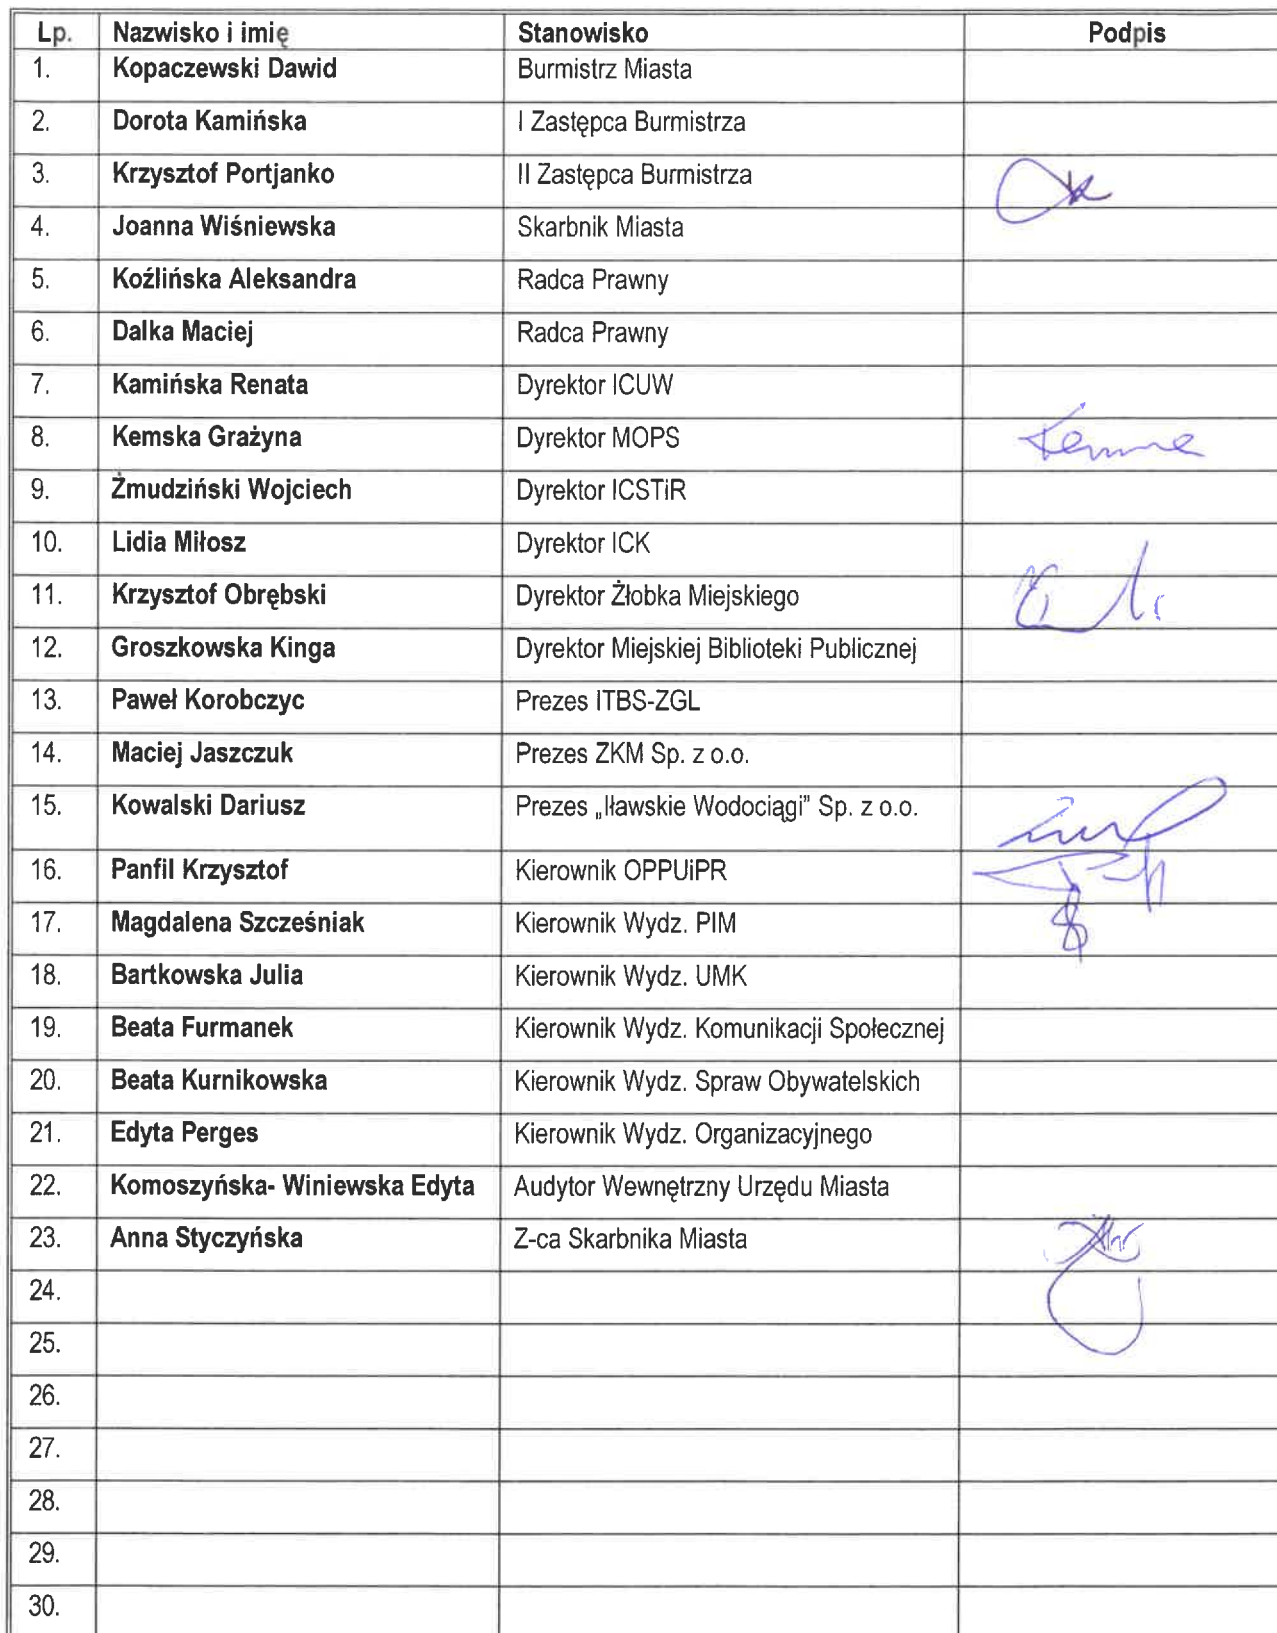 Lp. Nazwisko i imię Stanowisko Podpis
1. Kopaczewski Dawid Burmistrz Miasta
2. Dorota Kamińska I Zastępca Burmistrza
3. Krzysztof Portjanko II Zastępca Burmistrza
4. Joanna Wiśniewska Skarbnik Miasta
5. Koźlińska Aleksandra Radca Prawny
6. Dalka Maciej Radca Prawny
7. Kamińska Renata Dyrektor ICUW
8. Kemska Grażyna Dyrektor MOPS
9. Żmudziński Wojciech Dyrektor ICSTiR
10. Lidia Miłosz Dyrektor ICK
11. Krzysztof Obrębski Dyrektor Żłobka Miejskiego
12. Groszkowska Kinga Dyrektor Miejskiej Biblioteki Publicznej
13. Paweł Korobczyc Prezes ITBS-ZGL
14. Maciej Jaszczuk Prezes ZKM Sp. z o.o.
15. Kowalski Dariusz Prezes „Iławskie Wodociągi” Sp. z o.o.
16. Panfil Krzysztof Kierownik OPPUiPR
17. Magdalena Szcześniak Kierownik Wydz. PIM
18. Bartkowska Julia Kierownik Wydz. UMK
19. Beata Furmanek Kierownik Wydz. Komunikacji Społecznej
20. Beata Kurnikowska Kierownik Wydz. Spraw Obywatelskich
21. Edyta Perges Kierownik Wydz. Organizacyjnego
22. Komoszyńska- Winiewska Edyta Audytor Wewnętrzny Urzędu Miasta
23. Anna Styczyńska Z-ca Skarbnika Miasta
24.
25.
26.
27.
28.
29.
30.